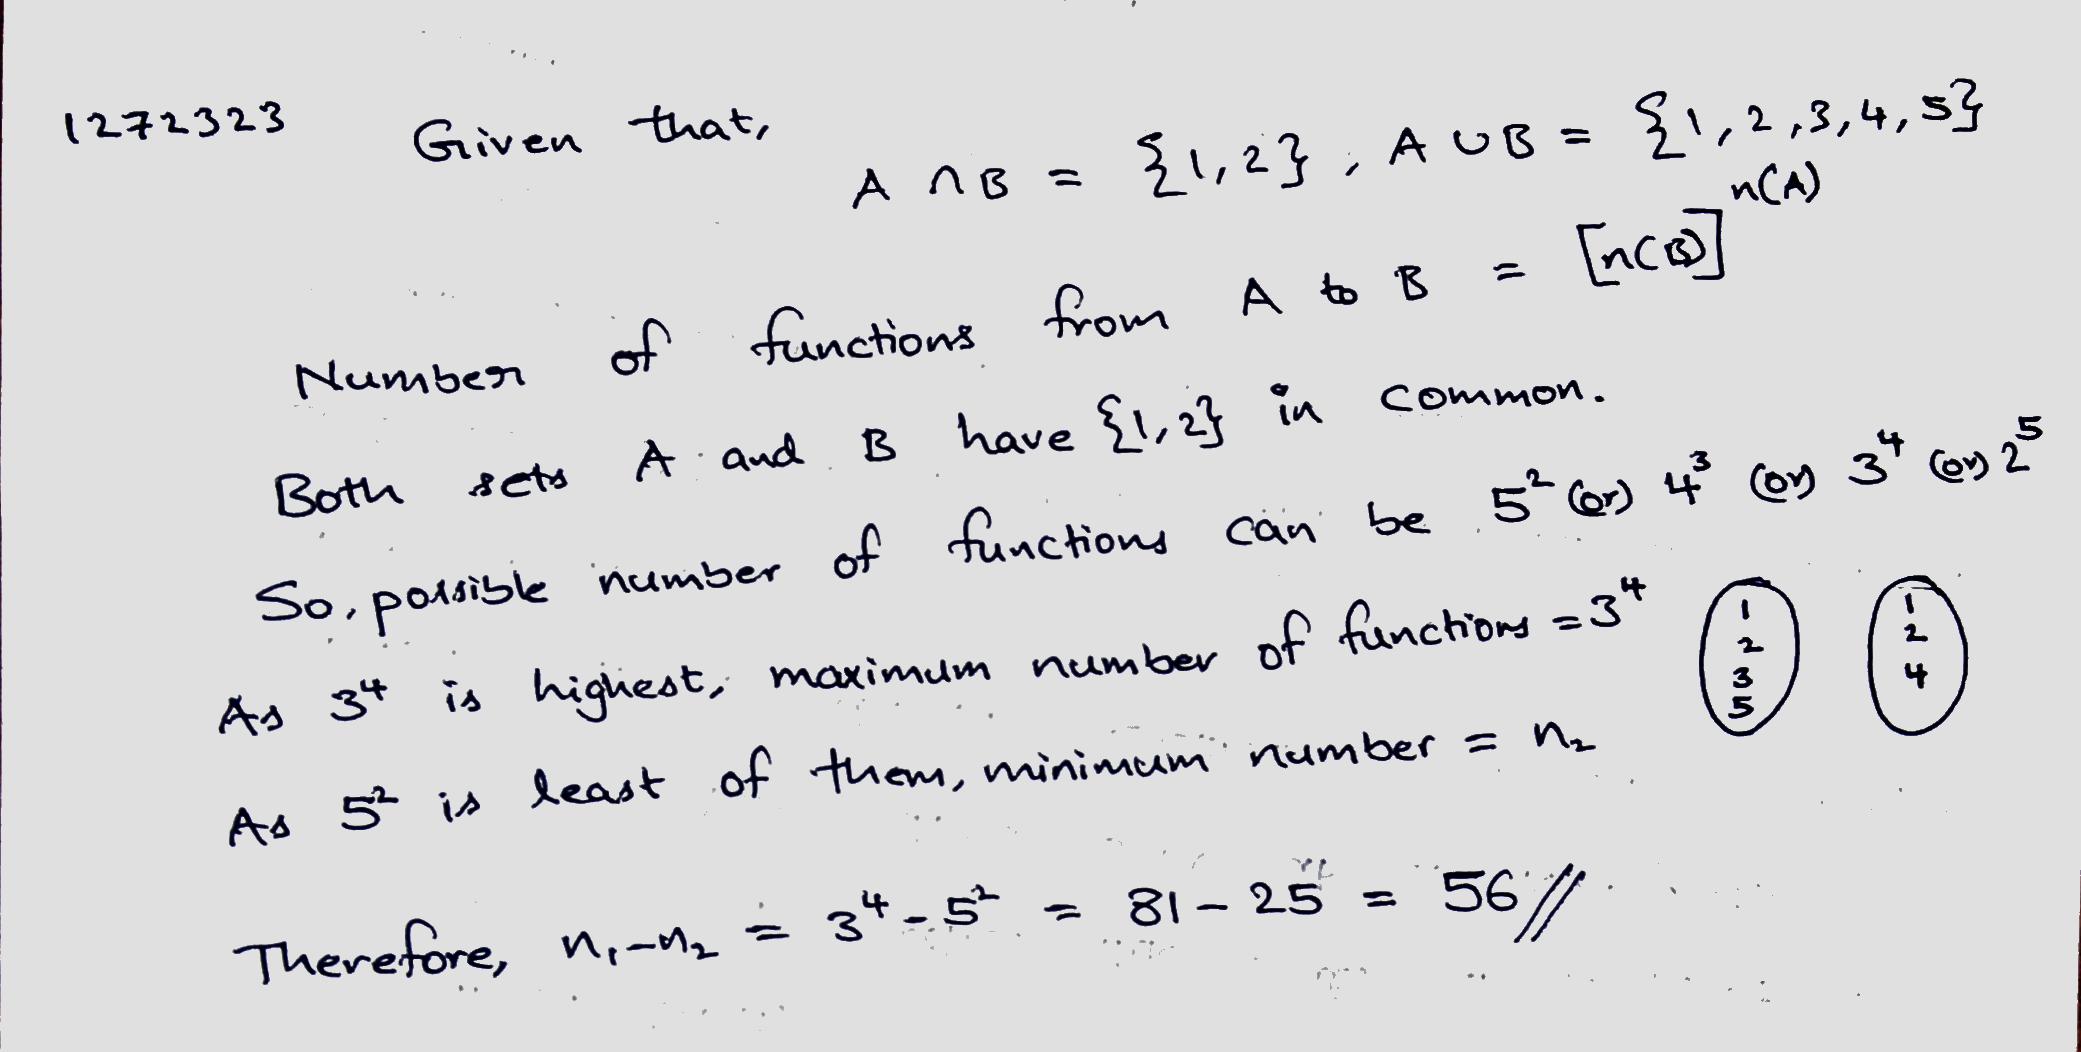 1272323 Given that,
A ∩ B = {1,2}, A ∪ B = {1,2,3,4,5}
Number of functions from A to B = [n(B)]^n(A)
Both sets A and B have {1,2} in common.
So, possible number of functions can be 5² (or) 4³ (or) 3⁴ (or) 2⁵
As 3⁴ is highest, maximum number of functions = 3⁴
1
2
3
5
1
2
4
As 5² is least of them, minimum number = n₂
Therefore, n₁-n₂ = 3⁴-5² = 81-25 = 56//